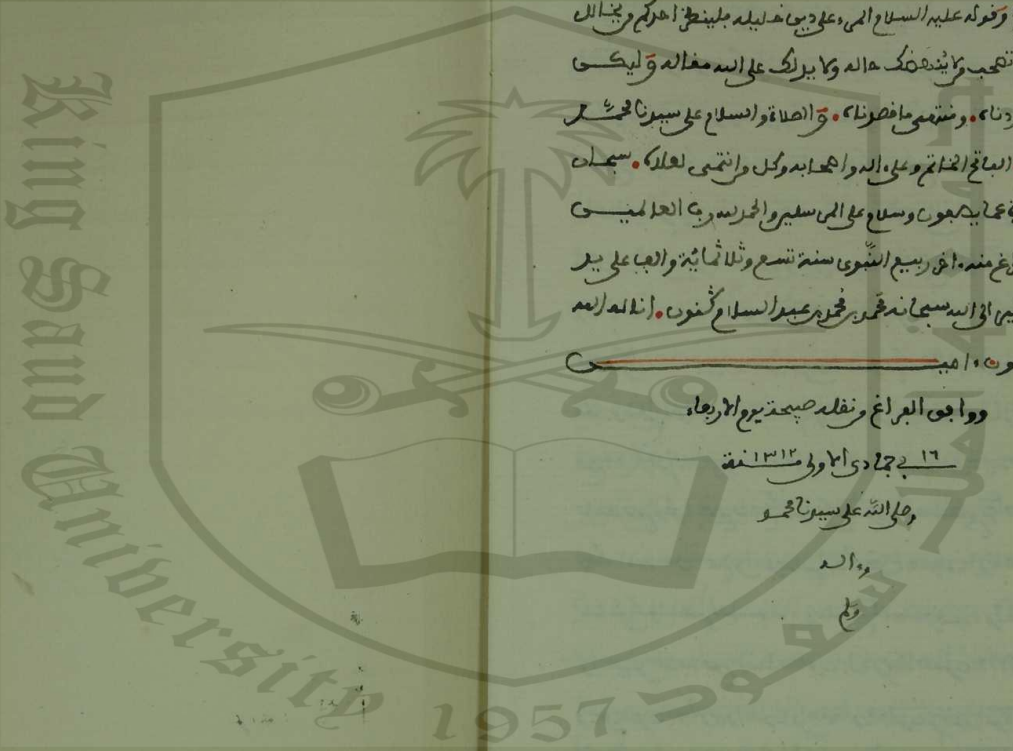 وقوله عليه السلام المرء على دين خليله فلينظر احدكم من يخالل
تصحب من لا ينهضك حاله ولا يدلك على الله مقاله وليكن
دناه. ومنتهى ما قصدناه. والصلاة والسلام على سيدنا محمد
الفاتح الخاتم وعلى اله واصحابه وكل من انتمى لعلاه. سبحان
عما يصفون وسلام على المرسلين والحمد لله رب العالمين
منه اخر ربيع النبوي سنة تسع وثلاثمائة والف على يد
الى الله سبحانه محمد بن محمد بن عبد السلام ڭنون. اناله الله
امين
ووافق الفراغ من نقله صبيحة يوم الاربعاء
١٦ في جمادى الاولى سنة ١٣١٢
وصلى الله على سيدنا محمد
وءاله
وسلم
King Saud University
1957
سعود